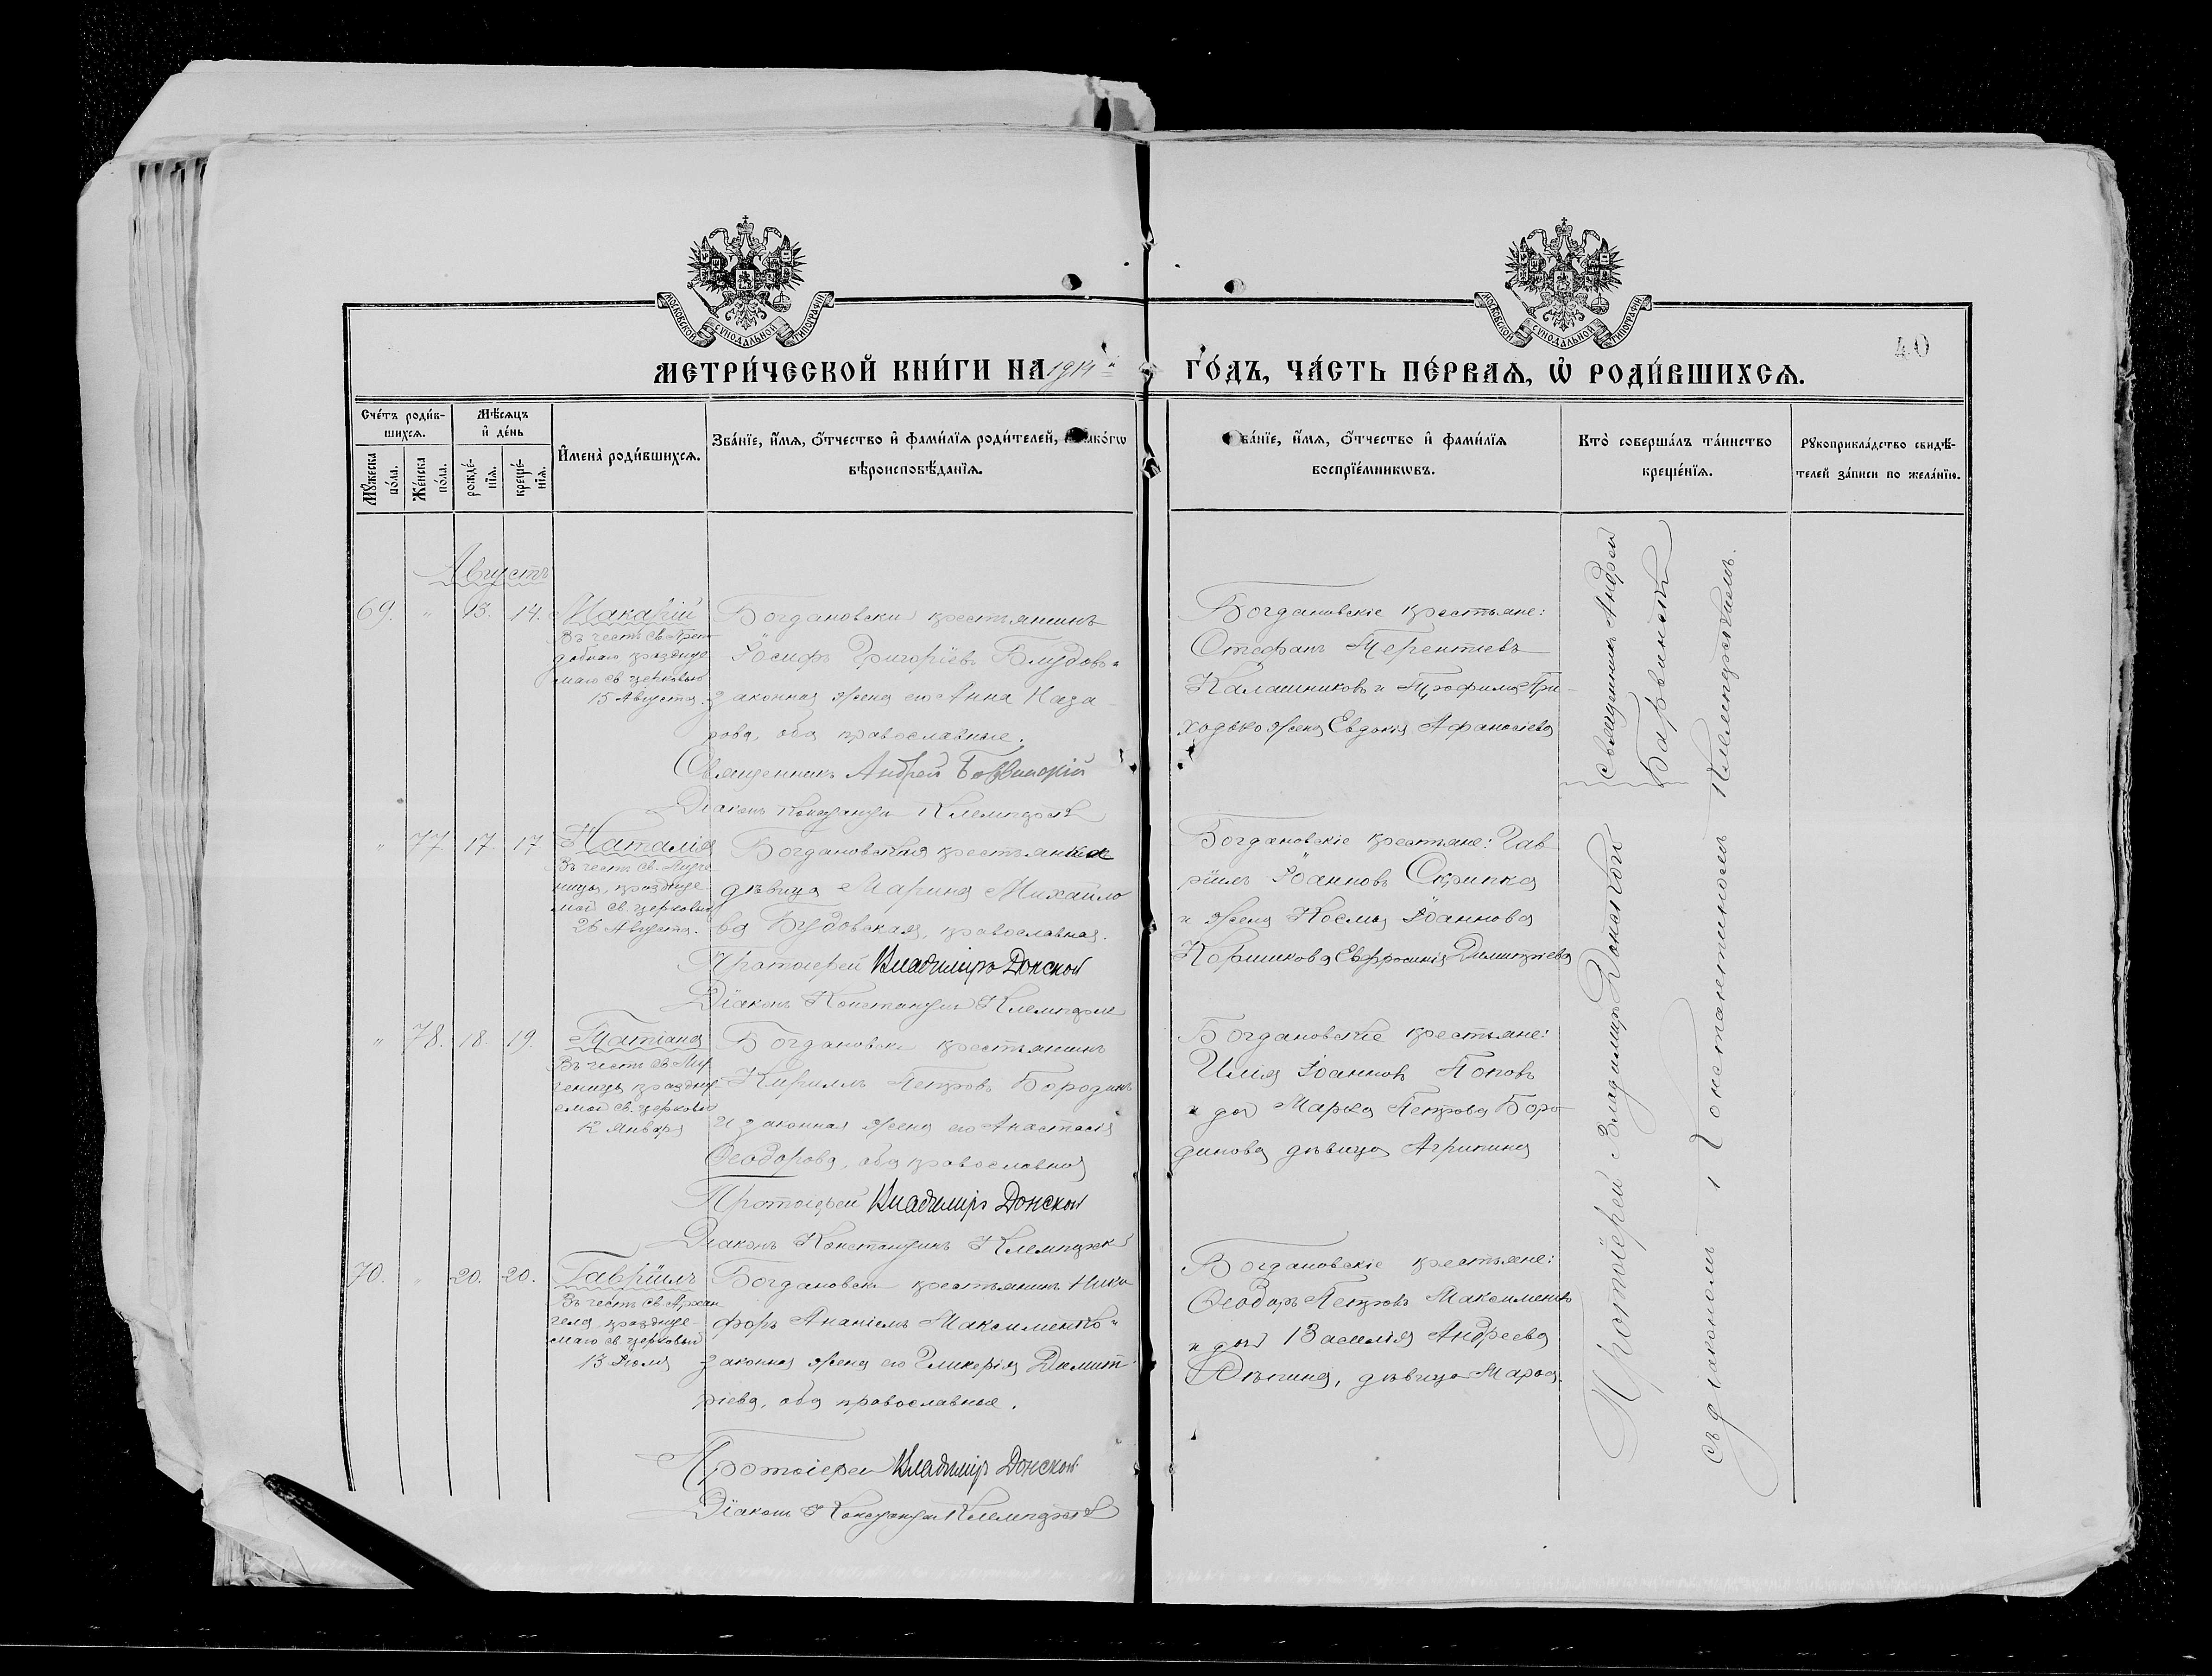 МОСКОВСКОЙ СѴНОДАЛЬНОЙ ТИПОГРАФІИ
МОСКОВСКОЙ СѴНОДАЛЬНОЙ ТИПОГРАФІИ
40
МЕТРИ́ЧЕСКОЙ КНИ́ГИ НА 1914 ГО́ДЪ, ЧА́СТЬ ПЕ́РВАЯ, Ѡ РОДИ́ВШИХСЯ.
Сче́тъ роди́в-
шихся.
Му́жеска по́ла.
Же́нска по́ла.
Мѣ́сяцъ
и҆ де́нь
рожде́-
нїя.
креще́-
нїя.
И҆мена̀ роди́вшихся.
Зва́нїе, и҆́мя, ѻ҆́тчество и҆ фами́лїя роди́телей, како́гѡ
вѣроисповѣ́данїя.
зва́нїе, и҆́мя, ѻ҆́тчество и҆ фами́лїя
воспрїе́мникѡвъ.
Кто̀ соверша́лъ та́инство
креще́нїя.
Рукоприкла́дство свидѣ́-
телей за́писи по жела́нїю.
Августъ
69. " 13. 14. Макарій
Въ честь св. Препо-
добнаго празднуе-
маго св. церковью
15 Августа.
Богдановскій крестьянинъ
Іосифъ Григоріевъ Блудовъ и
законная жена его Анна Наза-
рова, оба православные.
Священникъ Андрей Барвинскій
Діаконъ
Богдановскіе крестьяне:
Стефанъ Терентіевъ
Калашниковъ и Трофима При-
ходько жена Евдокія Афанасіева
Священникъ Андрей
Барвинскій
" 77. 17. 17 Наталія
Въ честь св. Муче-
ницы, празднуе-
мой св. церковью
26 Августа.
Богдановская крестьянка
дѣвица Марина Михайло-
ва Будовская, православная.
Протоіерей Владиміръ Донской
Діаконъ Константинъ
Богдановскіе крестьяне: Гав-
ріилъ Іоанновъ Скрипка
и жена Космы Іоаннова
Коршикова Евфросинія Димитріева
" 78. 18. 19. Татіана
Въ честь св. Му-
ченицы празднуе-
емой св. церковью
12 Января
Богдановскій крестьянинъ
Кириллъ Петровъ Бородинъ
и законная жена его Анастасія
Ѳеодорова, оба православныя
Протоіерей Владиміръ Донской
Діаконъ Константинъ
Богдановскіе крестьяне:
Илія Іоанновъ Поповъ
и доч Марка Петрова Боро-
динова дѣвица Агрипина
70. " 20. 20. Гавріилъ
Въ честь св. Архан-
гела празднуе-
маго св. церковью
13 Іюля
Богдановскій крестьянинъ Ники-
форъ Ананіевъ Максименко и
законная жена его Гликерія Димит-
ріева, оба православные.
Протоіерей Владиміръ Донской
Діаконъ Константинъ
Богдановскіе крестьяне:
Ѳеодоръ Петровъ Максименко
и доч Василія Андреева
дѣвица Марѳа.
Протоіерей Владиміръ Донской
съ діакономъ Константиномъ